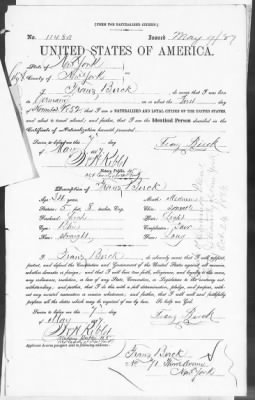 [FORM FOR NATURALIZED CITIZEN.]
No. 11430 Issued May 9/87
UNITED STATES OF AMERICA.
State of New York
County of New York
I, Franz Birck, do swear that I was born in
Germany on or about the first day
of 1852, that I am a NATURALIZED AND LOYAL CITIZEN OF THE UNITED STATES,
and about to travel abroad; and further, that I am the Identical Person described in the
Certificate of Naturalization herewith presented.
Sworn to before me this 7
day of May 1887 Franz Birck
Notary Public.
Description of Franz Birck
Age: 34 years Mouth: Medium
Stature: 5 feet 8 inches, Eng. Chin:
Forehead: High Hair: Light
Eyes: Blue Complexion: Fair
Nose: Straight Face: Long
I, Franz Birck, do solemnly swear that I will support,
protect, and defend the Constitution and Government of the United States against all enemies,
whether domestic or foreign; and that I will bear true faith, allegiance, and loyalty to the same,
any ordinance, resolution, or law of any State, Convention, or Legislature to the contrary notwithstanding;
and further, that I do this with a full determination, pledge, and purpose, without
any mental reservation or evasion whatsoever; and further, that I will well and faithfully
perform all the duties which may be required of me by law. So help me God.
Sworn to before me this 7
day of May 1887 Franz Birck
Notary Public
Applicant desires passport sent to following address:
Franz Birck
No 71 Third Avenue
New York